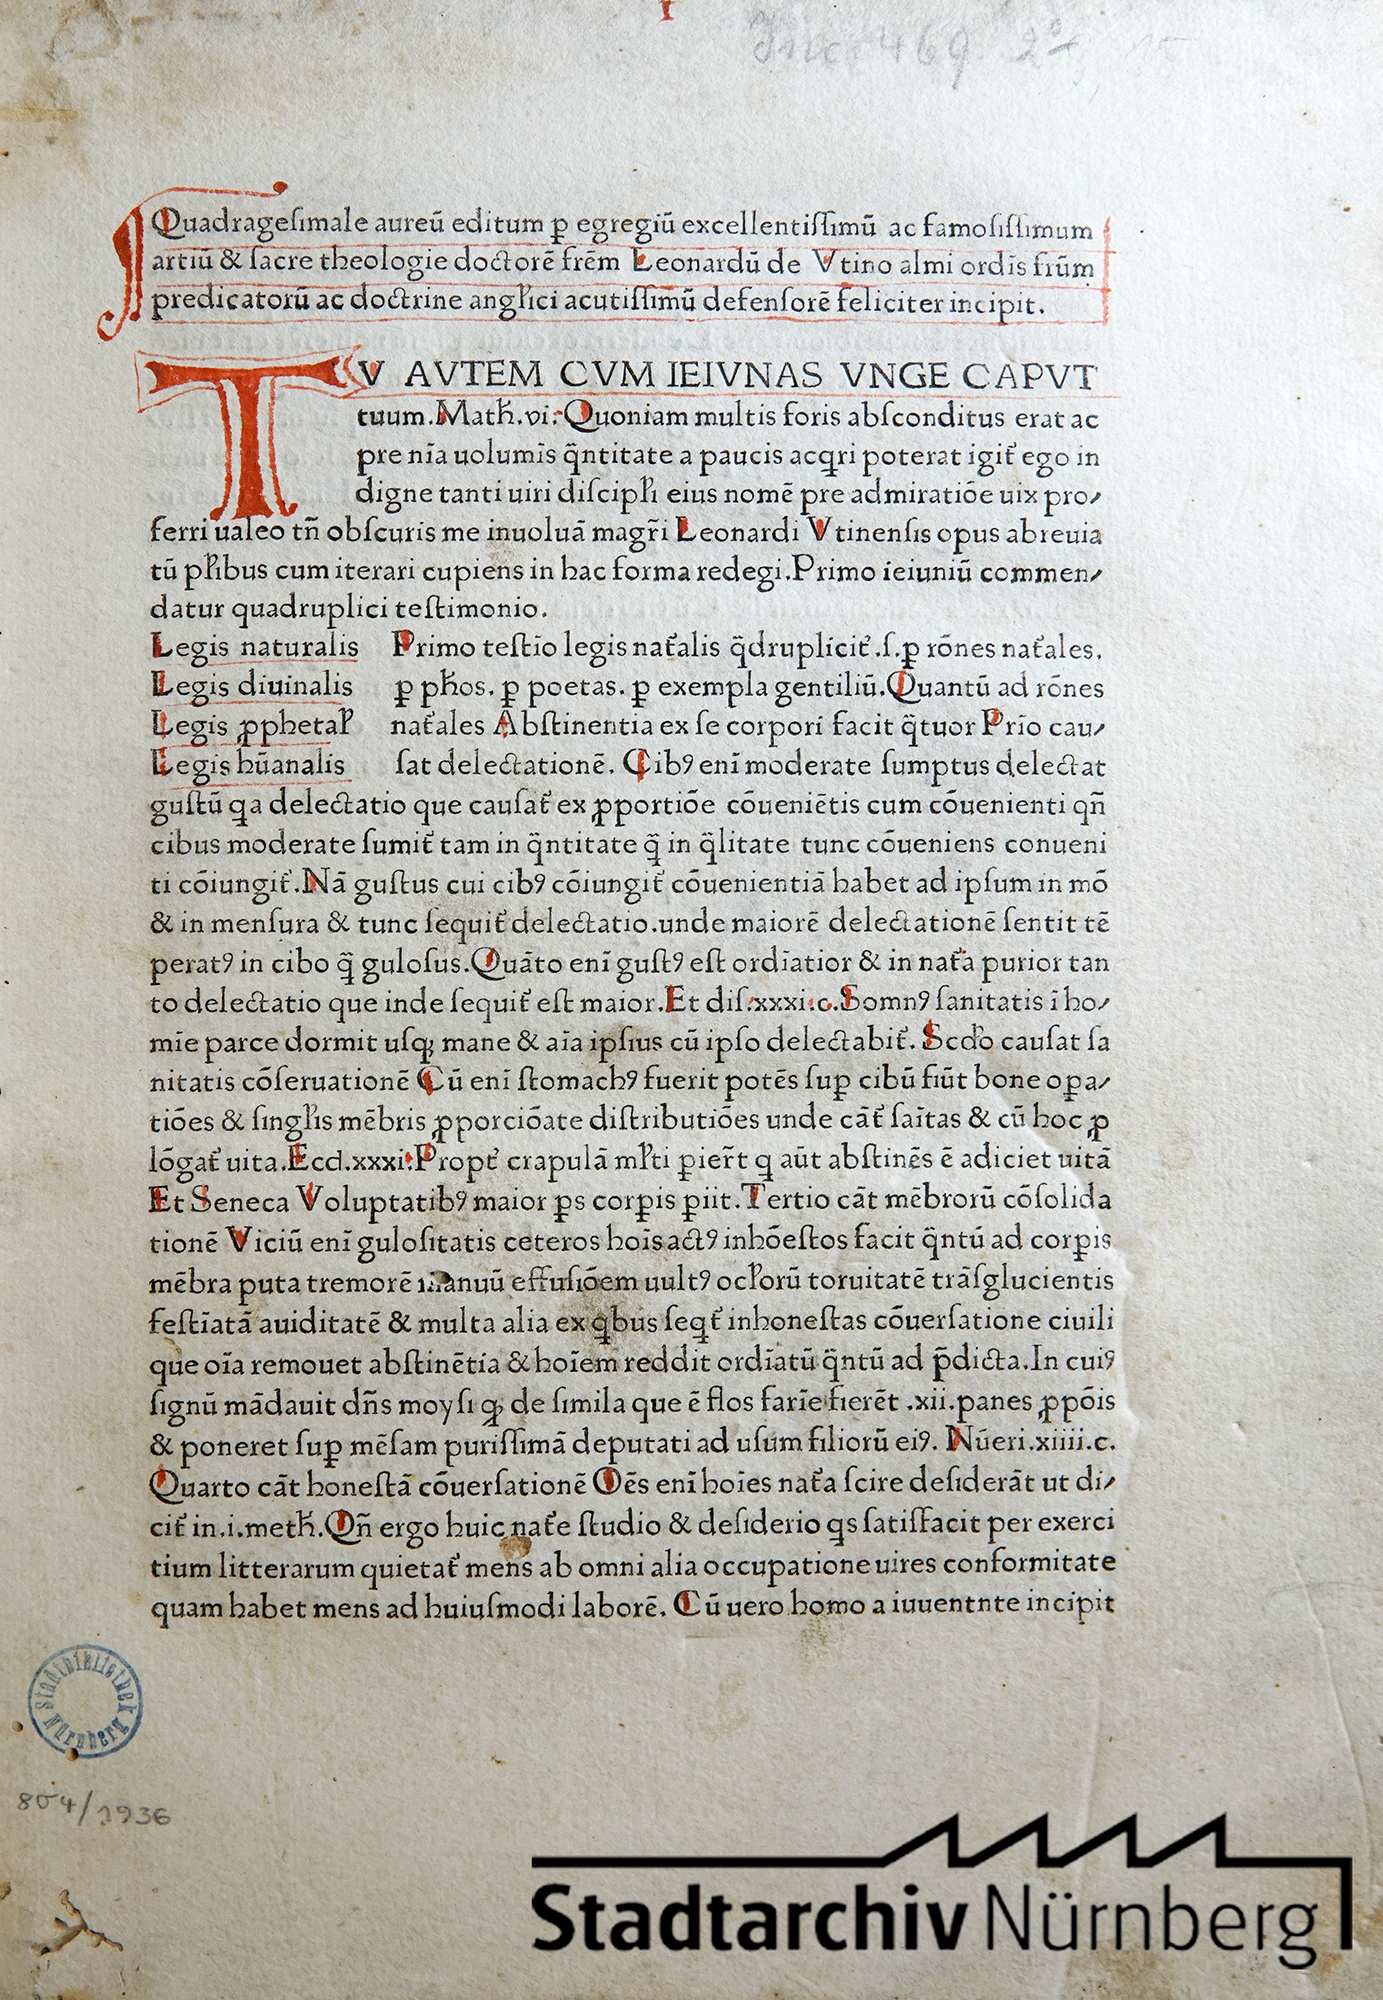 Inc. 469. 2°
Quadrageſimale aureū editum ꝑ egregiū excellentiſſimū ac famoſiſſimum
artiū & ſacre theologie doctorē frēm Leonardū de Vtino almi ordīs frūm
predicatorū ac doctrine angłici acutiſſimū defenſorē feliciter incipit.
TV AVTEM CVM IEIVNAS VNGE CAPVT
tuum. Matħ. vi. Quoniam multis foris abſconditus erat ac
pre nīa uolumīs q̄ntitate a paucis acqri poterat igit᷑ ego in
digne tanti uiri diſcipłi eius nomē pre admiratiōe uix pro⸗
ferri ualeo tn̄ obſcuris me inuoluā magr̄i Leonardi Vtinenſis opus abreuia
tū płibus cum iterari cupiens in hac forma redegi. Primo ieiuniū commen⸗
datur quadruplici teſtimonio.
Legis naturalis Primo teſtīo legis nat᷑alis q̄druplicit᷑ .ſ. ꝑ rōnes nat᷑ales.
Legis diuinalis ꝑ pħos. ꝑ poetas. ꝑ exempla gentiliū. Quantū ad rōnes
Legis ꝓphetaꝝ nat᷑ales Abſtinentia ex ſe corpori facit q̄tuor Prīo cau⸗
Legis hūanalis ſat delectationē. Cibꝰ enī moderate ſumptus delectat
guſtū qa delectatio que cauſat᷑ ex ꝓportiōe cōueniētis cum cōuenienti qn̄
cibus moderate ſumit᷑ tam in q̄ntitate q̄ in q̄litate tunc cōueniens conueni
ti cōiungit᷑. Nā guſtus cui cibꝰ cōiungit᷑ cōuenientiā habet ad ipſum in mō
& in menſura & tunc ſequit᷑ delectatio. unde maiorē delectationē ſentit tē
peratꝰ in cibo q̄ guloſus. Quāto enī guſtꝰ eſt ordīatior & in nat᷑a purior tan
to delectatio que inde ſequit᷑ eſt maior. Et diſ. xxxi. c. Somnꝰ ſanitatis ī ho⸗
mīe parce dormit uſqꝫ mane & aīa ipſius cū ipſo delectabit᷑. Scdo cauſat ſa
nitatis cōſeruationē Cū enī ſtomachꝰ fuerit potēs ſuꝑ cibū fiūt bone oꝑa⸗
tiōes & ſingłis mēbris ꝓporciōate diſtributiōes unde cāt᷑ ſaītas & cū hoc ꝓ
lōgat᷑ uita. Eccl. xxxi. Propt᷑ crapulā młti ꝑier̄t q aūt abſtinēs ē adiciet uitā
Et Seneca Voluptatibꝰ maior ꝑs corꝑis ꝑiit. Tertio cāt mēbrorū cōſolida
tionē Viciū enī guloſitatis ceteros hoīs actꝰ inhōeſtos facit q̄ntū ad corꝑis
mēbra puta tremorē manuū effuſiōem uultꝰ ocłorū toruitatē trāſglucientis
feſtīatā auiditatē & multa alia ex qbus ſeqt᷑ inhoneſtas cōuerſatione ciuili
que oīa remouet abſtinētia & hoīem reddit ordīatū q̄ntū ad p̄dicta. In cuiꝰ
ſignū mādauit dn̄s moyſi qꝫ de ſimila que ē flos farīe fierēt .xii. panes ꝓpōis
& poneret ſuꝑ mēſam puriſſimā deputati ad uſum filiorū eiꝰ. Nūeri. xiiii. c.
Quarto cāt honeſtā cōuerſationē Oēs enī hoīes nat᷑a ſcire deſiderāt ut di⸗
cit᷑ in. i. metħ. Qn̄ ergo huic nat᷑e ſtudio & deſiderio qs ſatiſfacit per exerci
tium litterarum quietat᷑ mens ab omni alia occupatione uires conformitate
quam habet mens ad huiuſmodi laborē. Cū uero homo a iuuentnte incipit
Stadtbibliothek Nürnberg
804/1936
Stadtarchiv Nürnberg